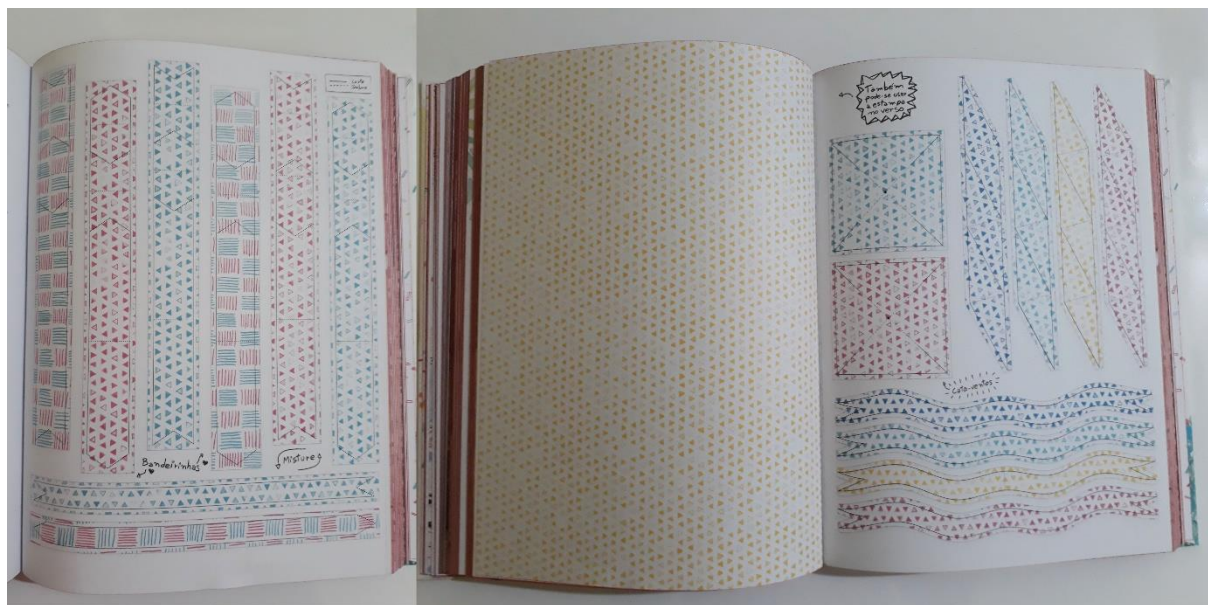 Corte
Dobre
Bandeirinhas
Misture
Também
pode-se usar
a estampa
no verso
Cata-ventos